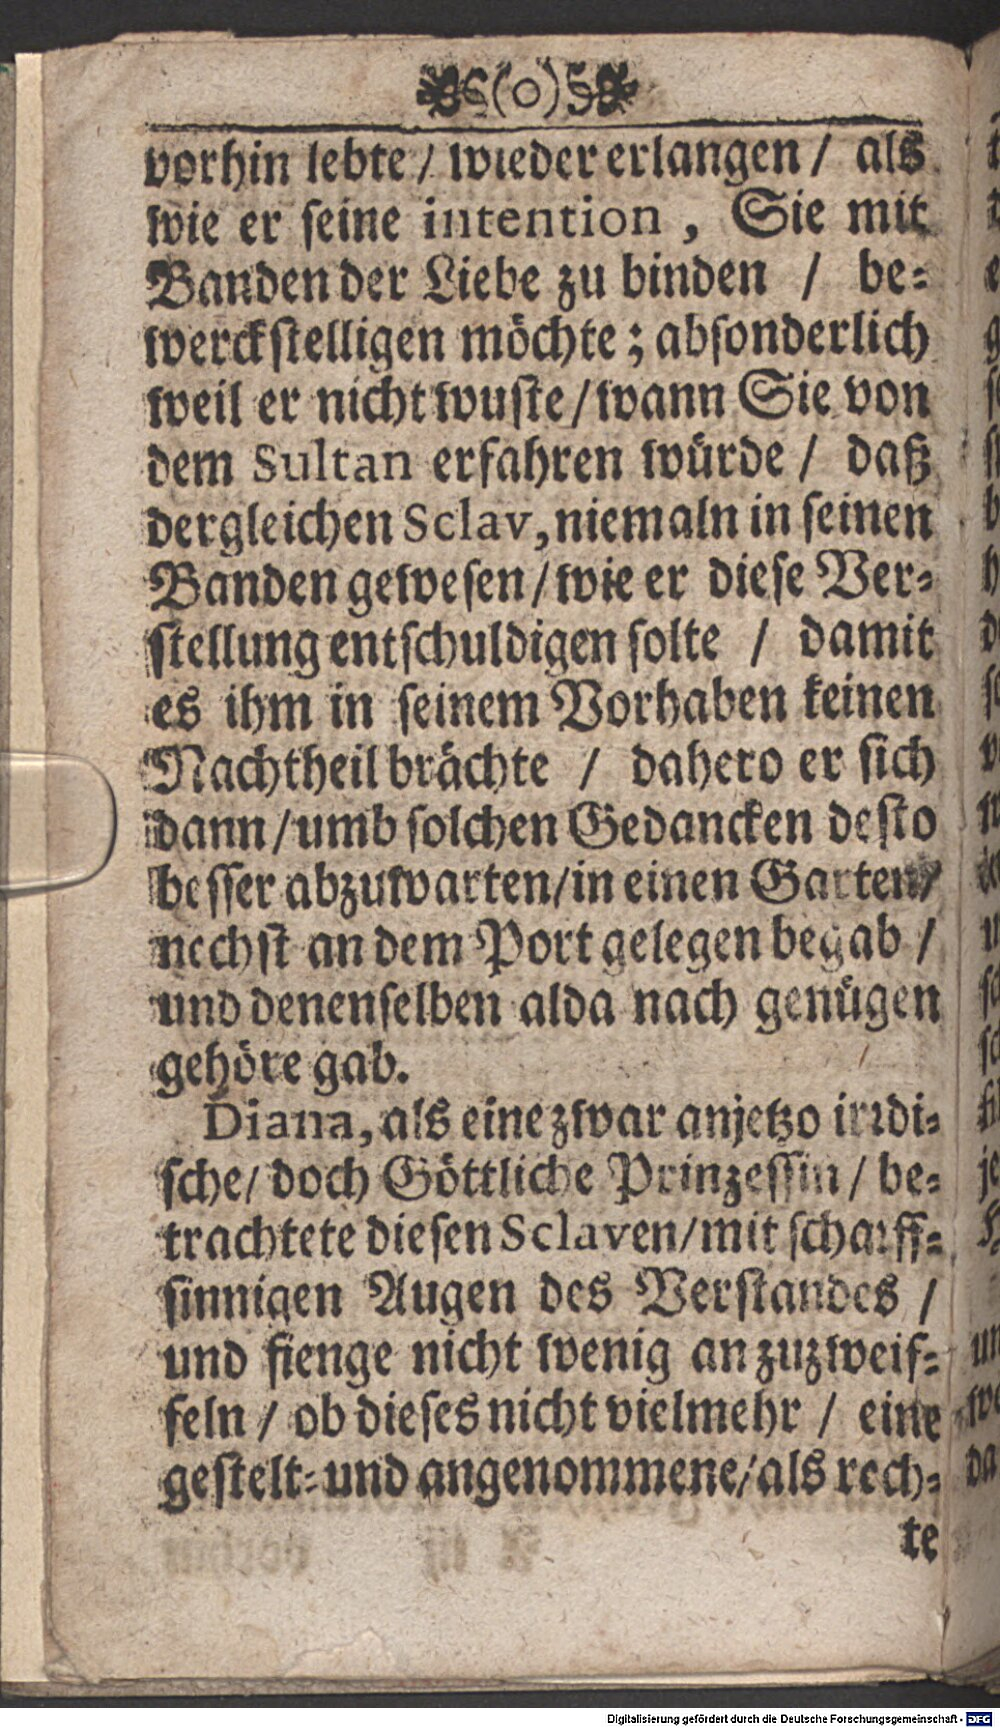 (o)
vorhin lebte / wieder erlangen / als
wie er seine intention, Sie mit
Banden der Liebe zu binden / be-
werckstelligen möchte; absonderlich
weil er nicht wuste / wann Sie von
dem Sultan erfahren würde / daß
dergleichen Sclav, niemaln in seinen
Banden gewesen / wie er diese Ver-
stellung entschuldigen solte / damit
es ihm in seinem Vorhaben keinen
Nachtheil brächte / dahero er sich
dann / umb solchen Gedancken desto
besser abzuwarten / in einen Garten /
nechst an dem Port gelegen begab /
und denenselben alda nach genügen
gehöre gab.
Diana, als eine zwar anjetzo irrdi-
sche / doch Göttliche Prinzessin / be-
trachtete diesen Sclaven / mit scharff-
sinnigen Augen des Verstandes /
und fienge nicht wenig an zuzweif-
feln / ob dieses nicht vielmehr / eine
gestelt- und angenommene / als rech-
te
Digitalisierung gefördert durch die Deutsche Forschungsgemeinschaft - DFG